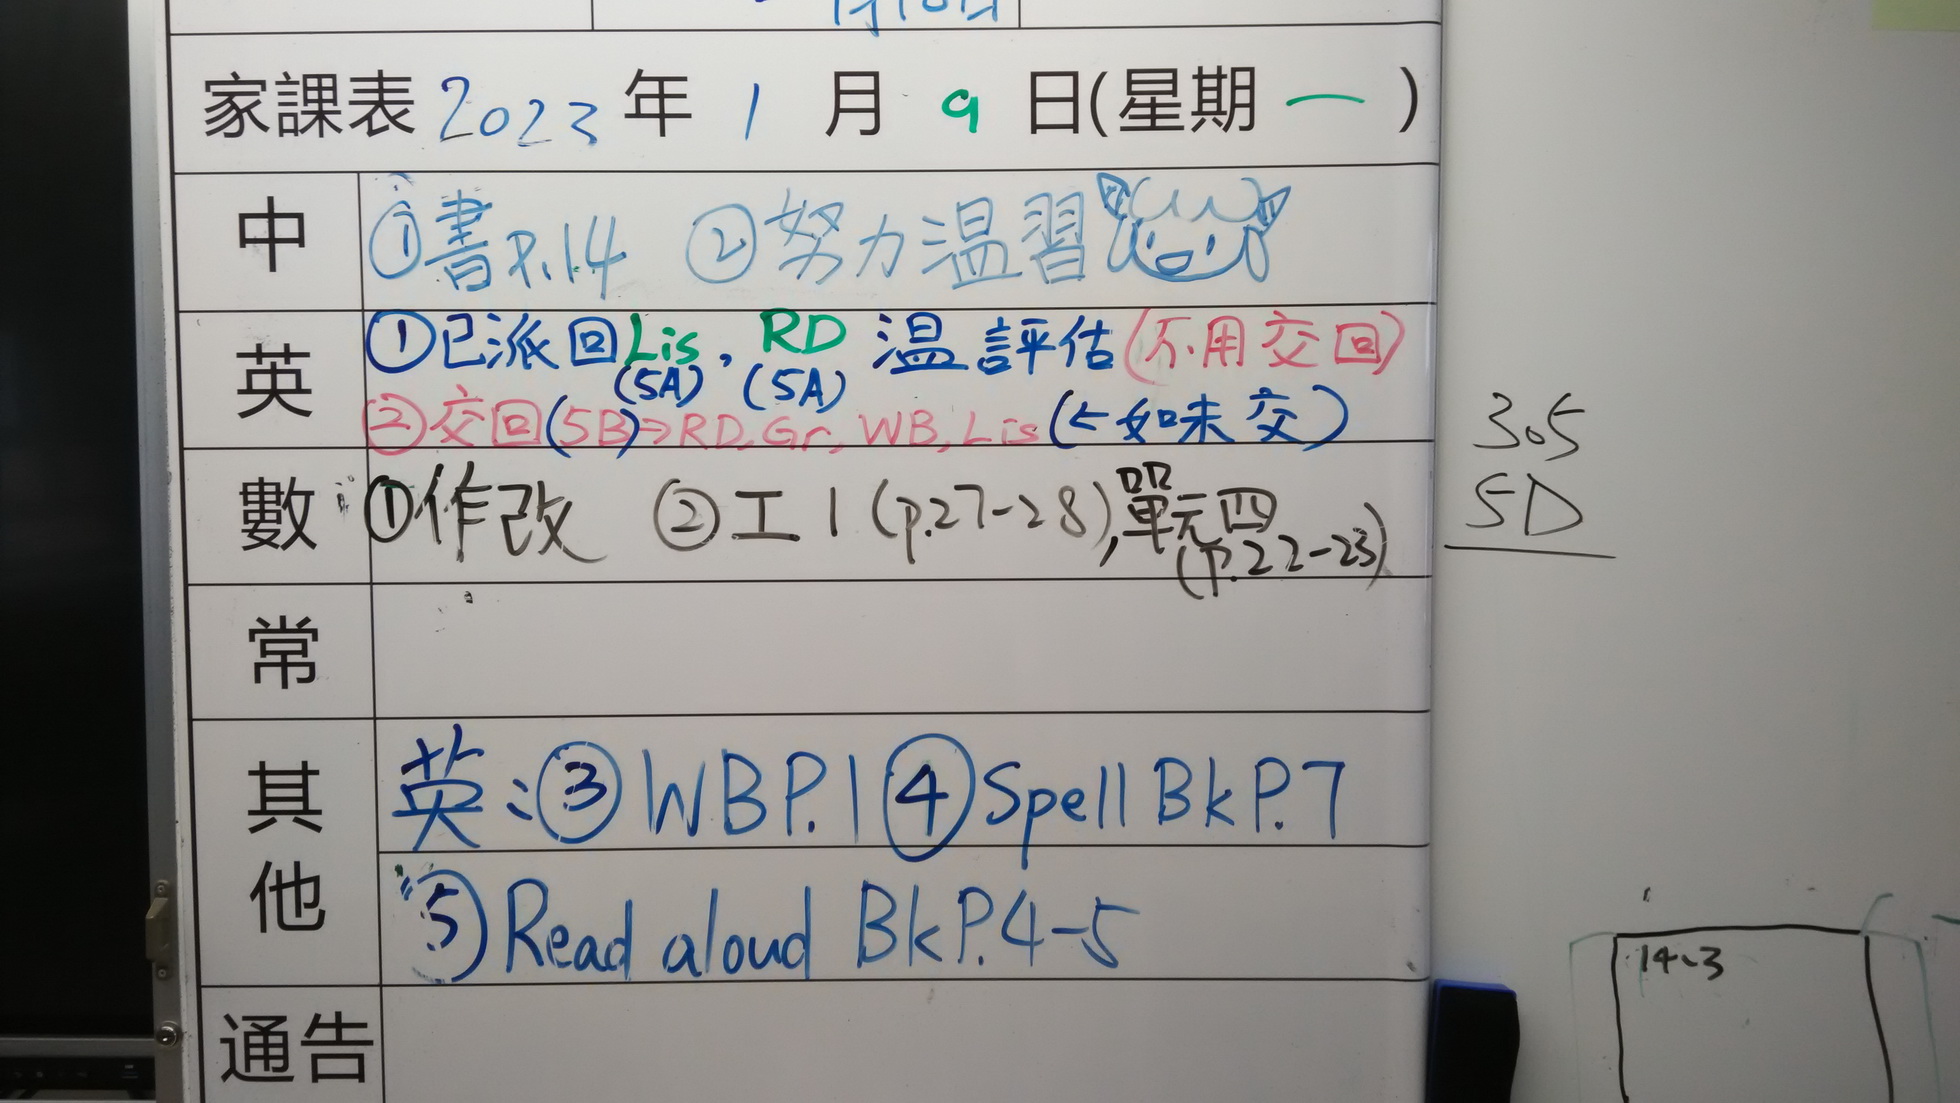 1月10日
家課表 2023 年 1 月 9 日(星期 一 )
中 ①書P.14 ②努力温習
英 ①已派回Lis, RD 温評估(不用交回)
(5A) (5A)
②交回(5B)→RD, Gr, WB, Lis(←如未交)
數 ①作改 ②工1(p.27-28),單元四
(p.22-23)
常
其他 英:③WBP.1④Spell BkP.7
⑤Read aloud BkP.4-5
通告
305
5D
14、3